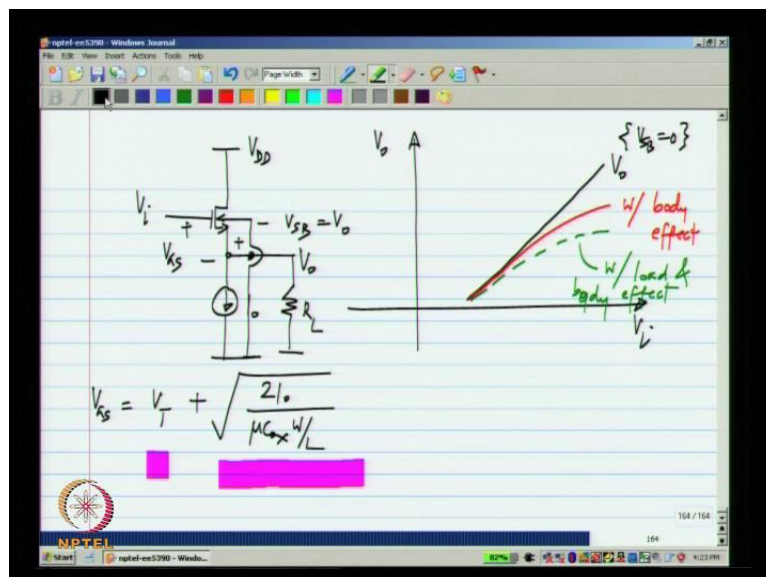 nptel-ee5390 - Windows Journal
File Edit View Insert Actions Tools Help
Page Width
B I
V_DD
V_i
+
- V_SB = V_o
V_GS - + V_o
I_o
R_L
V_o
{V_SB=0}
V_o
w/ body
effect
w/ load &
body effect
V_i
V_GS = V_T + √(2I_o / μC_ox W/L)
164 / 164
164
NPTEL
Start nptel-ee5390 - Windo...
82%
4:23 PM